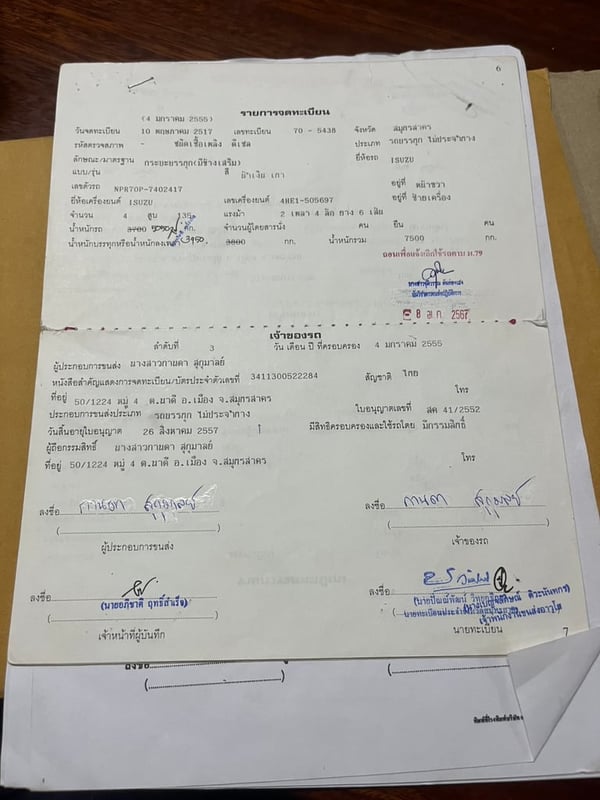 6
รายการจดทะเบียน
(4 มกราคม 2555)
วันจดทะเบียน 10 พฤษภาคม 2517 เลขทะเบียน 70 - 5438 จังหวัด สมุทรสาคร
รหัสตรวจสภาพ - ชนิดเชื้อเพลิง ดีเซล ประเภท รถบรรทุก ไม่ประจำทาง
ลักษณะ/มาตรฐาน กระบะบรรทุก(มีข้างเสริม) ยี่ห้อรถ ISUZU
แบบ/รุ่น สี ฟ้าเงิน เทา
เลขตัวรถ NPR70P-7402417 อยู่ที่ คัสซีขวา
ยี่ห้อเครื่องยนต์ ISUZU เลขเครื่องยนต์ 4HE1-505697 อยู่ที่ ซ้ายเครื่อง
จำนวน 4 สูบ 135 แรงม้า 2 เพลา 4 ล้อ ยาง 6 เส้น
น้ำหนักรถ 3700 5050 กก. จำนวนผู้โดยสารนั่ง คน ยืน คน
น้ำหนักบรรทุกหรือน้ำหนักลงเพลา 3950 3800 กก. น้ำหนักรวม 7500 กก.
ถอนเพื่อแจ้งเลิกใช้รถตาม ม.79
8 ม.ค. 2567
เจ้าของรถ
ลำดับที่ 3 วัน เดือน ปี ที่ครอบครอง 4 มกราคม 2555
ผู้ประกอบการขนส่ง นางสาวกานดา สุกุมาลย์
หนังสือสำคัญแสดงการจดทะเบียน/บัตรประจำตัวเลขที่ 3411300522284 สัญชาติ ไทย
ที่อยู่ 50/1224 หมู่ 4 ต.นาดี อ.เมือง จ.สมุทรสาคร โทร
ประกอบการขนส่งประเภท รถบรรทุก ไม่ประจำทาง ใบอนุญาตเลขที่ สค 41/2552
วันสิ้นอายุใบอนุญาต 26 สิงหาคม 2557 มีสิทธิครอบครองและใช้รถโดย มีกรรมสิทธิ์
ผู้ถือกรรมสิทธิ์ นางสาวกานดา สุกุมาลย์
ที่อยู่ 50/1224 หมู่ 4 ต.นาดี อ.เมือง จ.สมุทรสาคร โทร
ลงชื่อ กานดา สุกุมาลย์ ลงชื่อ กานดา สุกุมาลย์
ผู้ประกอบการขนส่ง เจ้าของรถ
ลงชื่อ ลงชื่อ
(นายอภิชาติ ฤทธิ์สำเร็จ)
เจ้าหน้าที่ผู้บันทึก นายทะเบียน
เจ้าพนักงานขนส่งอาวุโส
7
ลงชื่อ